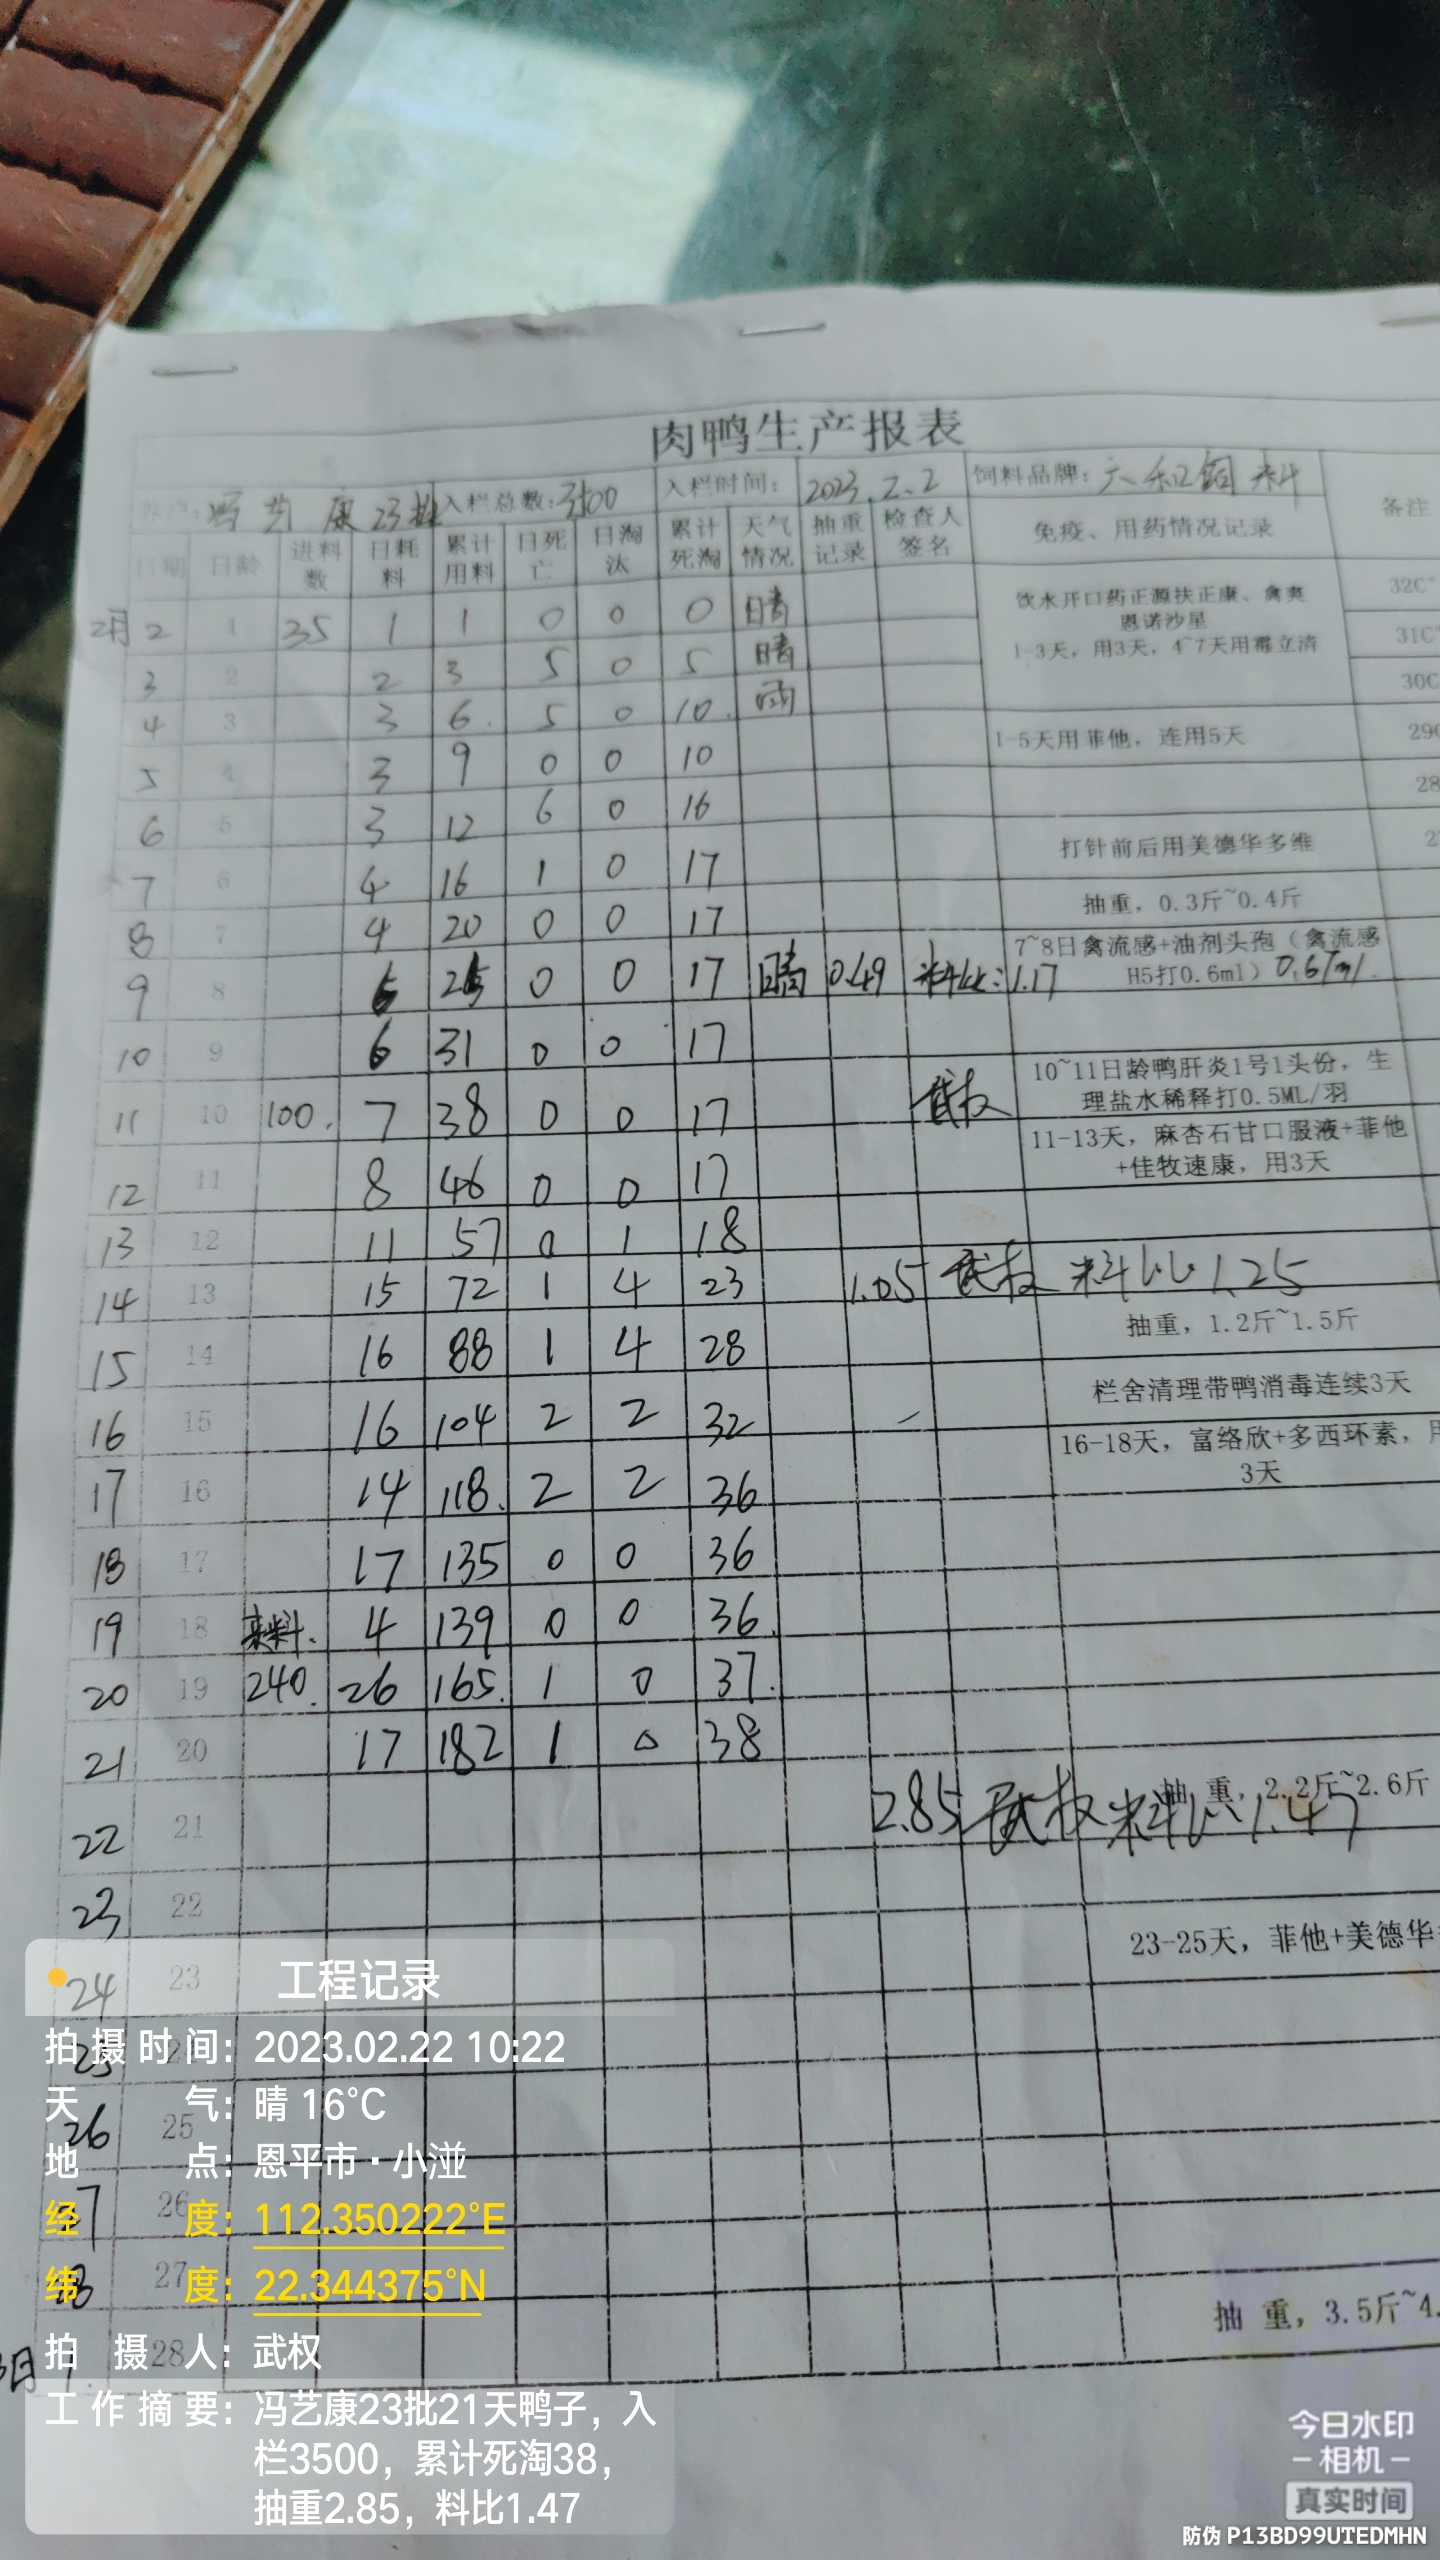 肉鸭生产报表
冯艺康23批 入栏总数:3500 入栏时间: 2023.2.2 饲料品牌: 六和饲料 备注
日期 日龄 进料数 日耗料 累计用料 日死亡 日淘汰 累计死淘 天气情况 抽重记录 检查人签名 免疫、用药情况记录
2月2 1 35 1 1 0 0 0 晴 饮水开口药正源扶正康、禽爽 32C°
恩诺沙星
1-3天,用3天,4~7天用霉立清
3 2 2 3 5 0 5 晴 31C°
4 3 3 6. 5 0 10. 雨 30C
5 4 3 9 0 0 10 1-5天用菲他,连用5天 290
6 5 3 12 6 0 16 28
7 6 4 16 1 0 17 打针前后用美德华多维 2
8 7 4 20 0 0 17 抽重,0.3斤~0.4斤
9 8 0 0 17 晴 0.49 料比:1.17 7~8日禽流感+油剂头孢(禽流感
H5打0.6ml) 0.67ml.
10 9 6 31 0 0 17
11 10 100. 7 38 0 0 17 武权 10~11日龄鸭肝炎1号1头份,生
理盐水稀释打0.5ML/羽
12 11 8 46 0 0 17 11-13天,麻杏石甘口服液+菲他
+佳牧速康,用3天
13 12 11 57 0 1 18
14 13 15 72 1 4 23 1.05 武权 料比1.25
15 14 16 88 1 4 28 抽重,1.2斤~1.5斤
16 15 16 104 2 2 32 栏舍清理带鸭消毒连续3天
17 16 14 118. 2 2 36 16-18天,富络欣+多西环素,用
3天
18 17 17 135 0 0 36
19 18 来料. 4 139 0 0 36.
20 19 240. 26 165. 1 0 37.
21 20 17 182 1 0 38
22 21 2.85 武权 料比1.47 抽 重,2.2斤~2.6斤
23 22
24 23 23-25天,菲他+美德华
25 24
26 25
27 26
28 27
28 抽 重,3.5斤~4.
工程记录
拍摄时间:2023.02.22 10:22
天气:晴 16°C
地点:恩平市·小湴
经度:112.350222°E
纬度:22.344375°N
拍摄人:武权
工作摘要:冯艺康23批21天鸭子,入
栏3500,累计死淘38,
抽重2.85,料比1.47
今日水印
-相机-
真实时间
防伪 P13BD99UTEDMHN